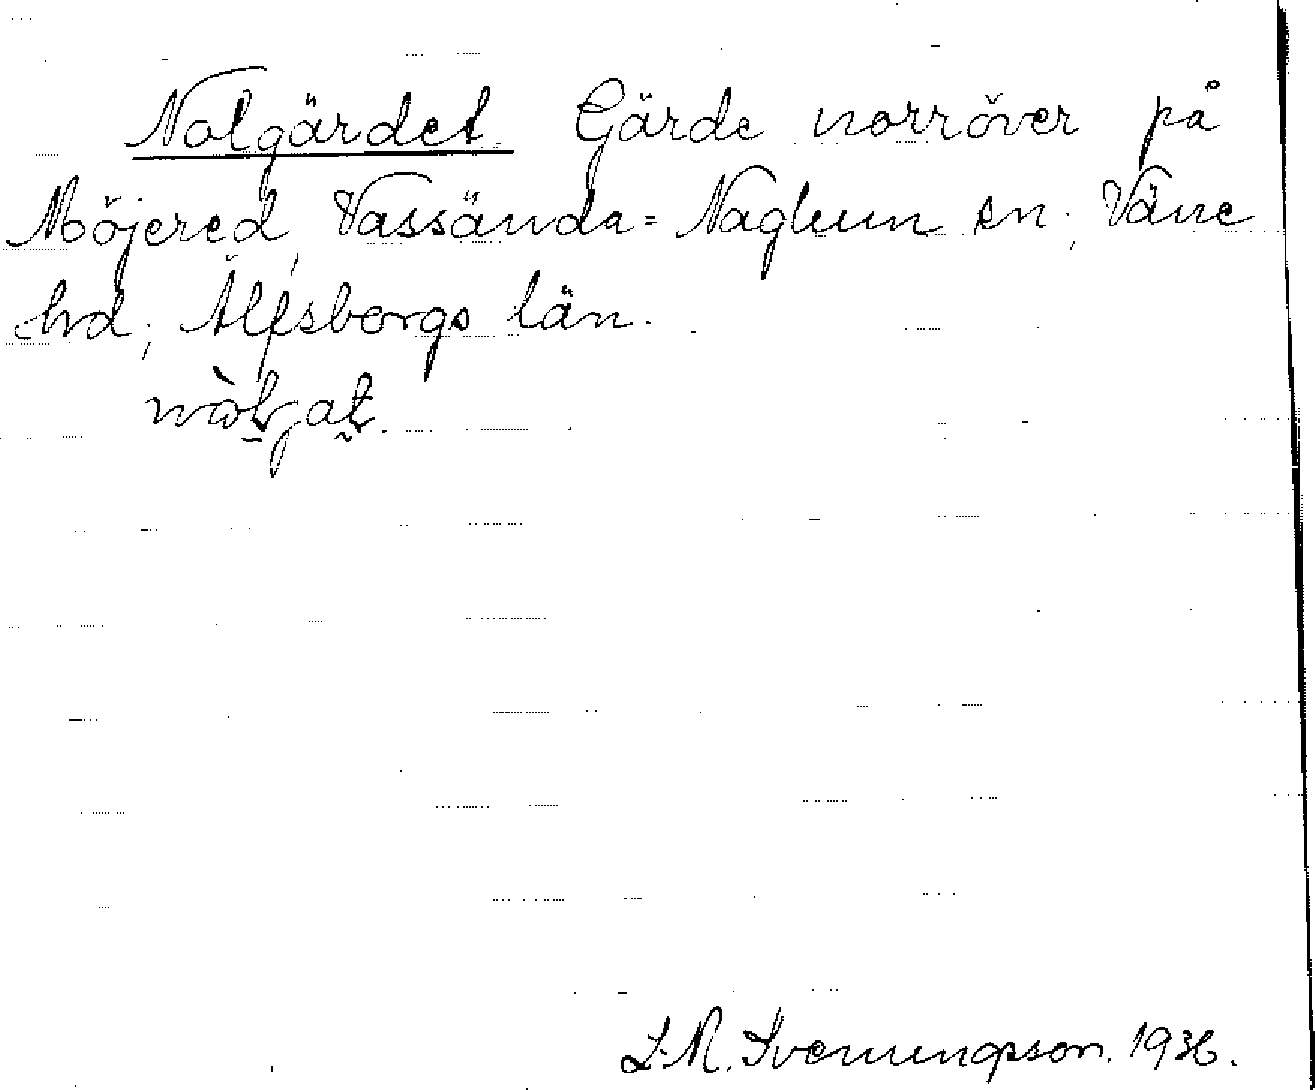 Nolgärdet Gärde norröver på
Möjered, Vassända=Naglum sn; Väne
hd; Älfsborgs län.
L.M. Svenungsson. 1936.